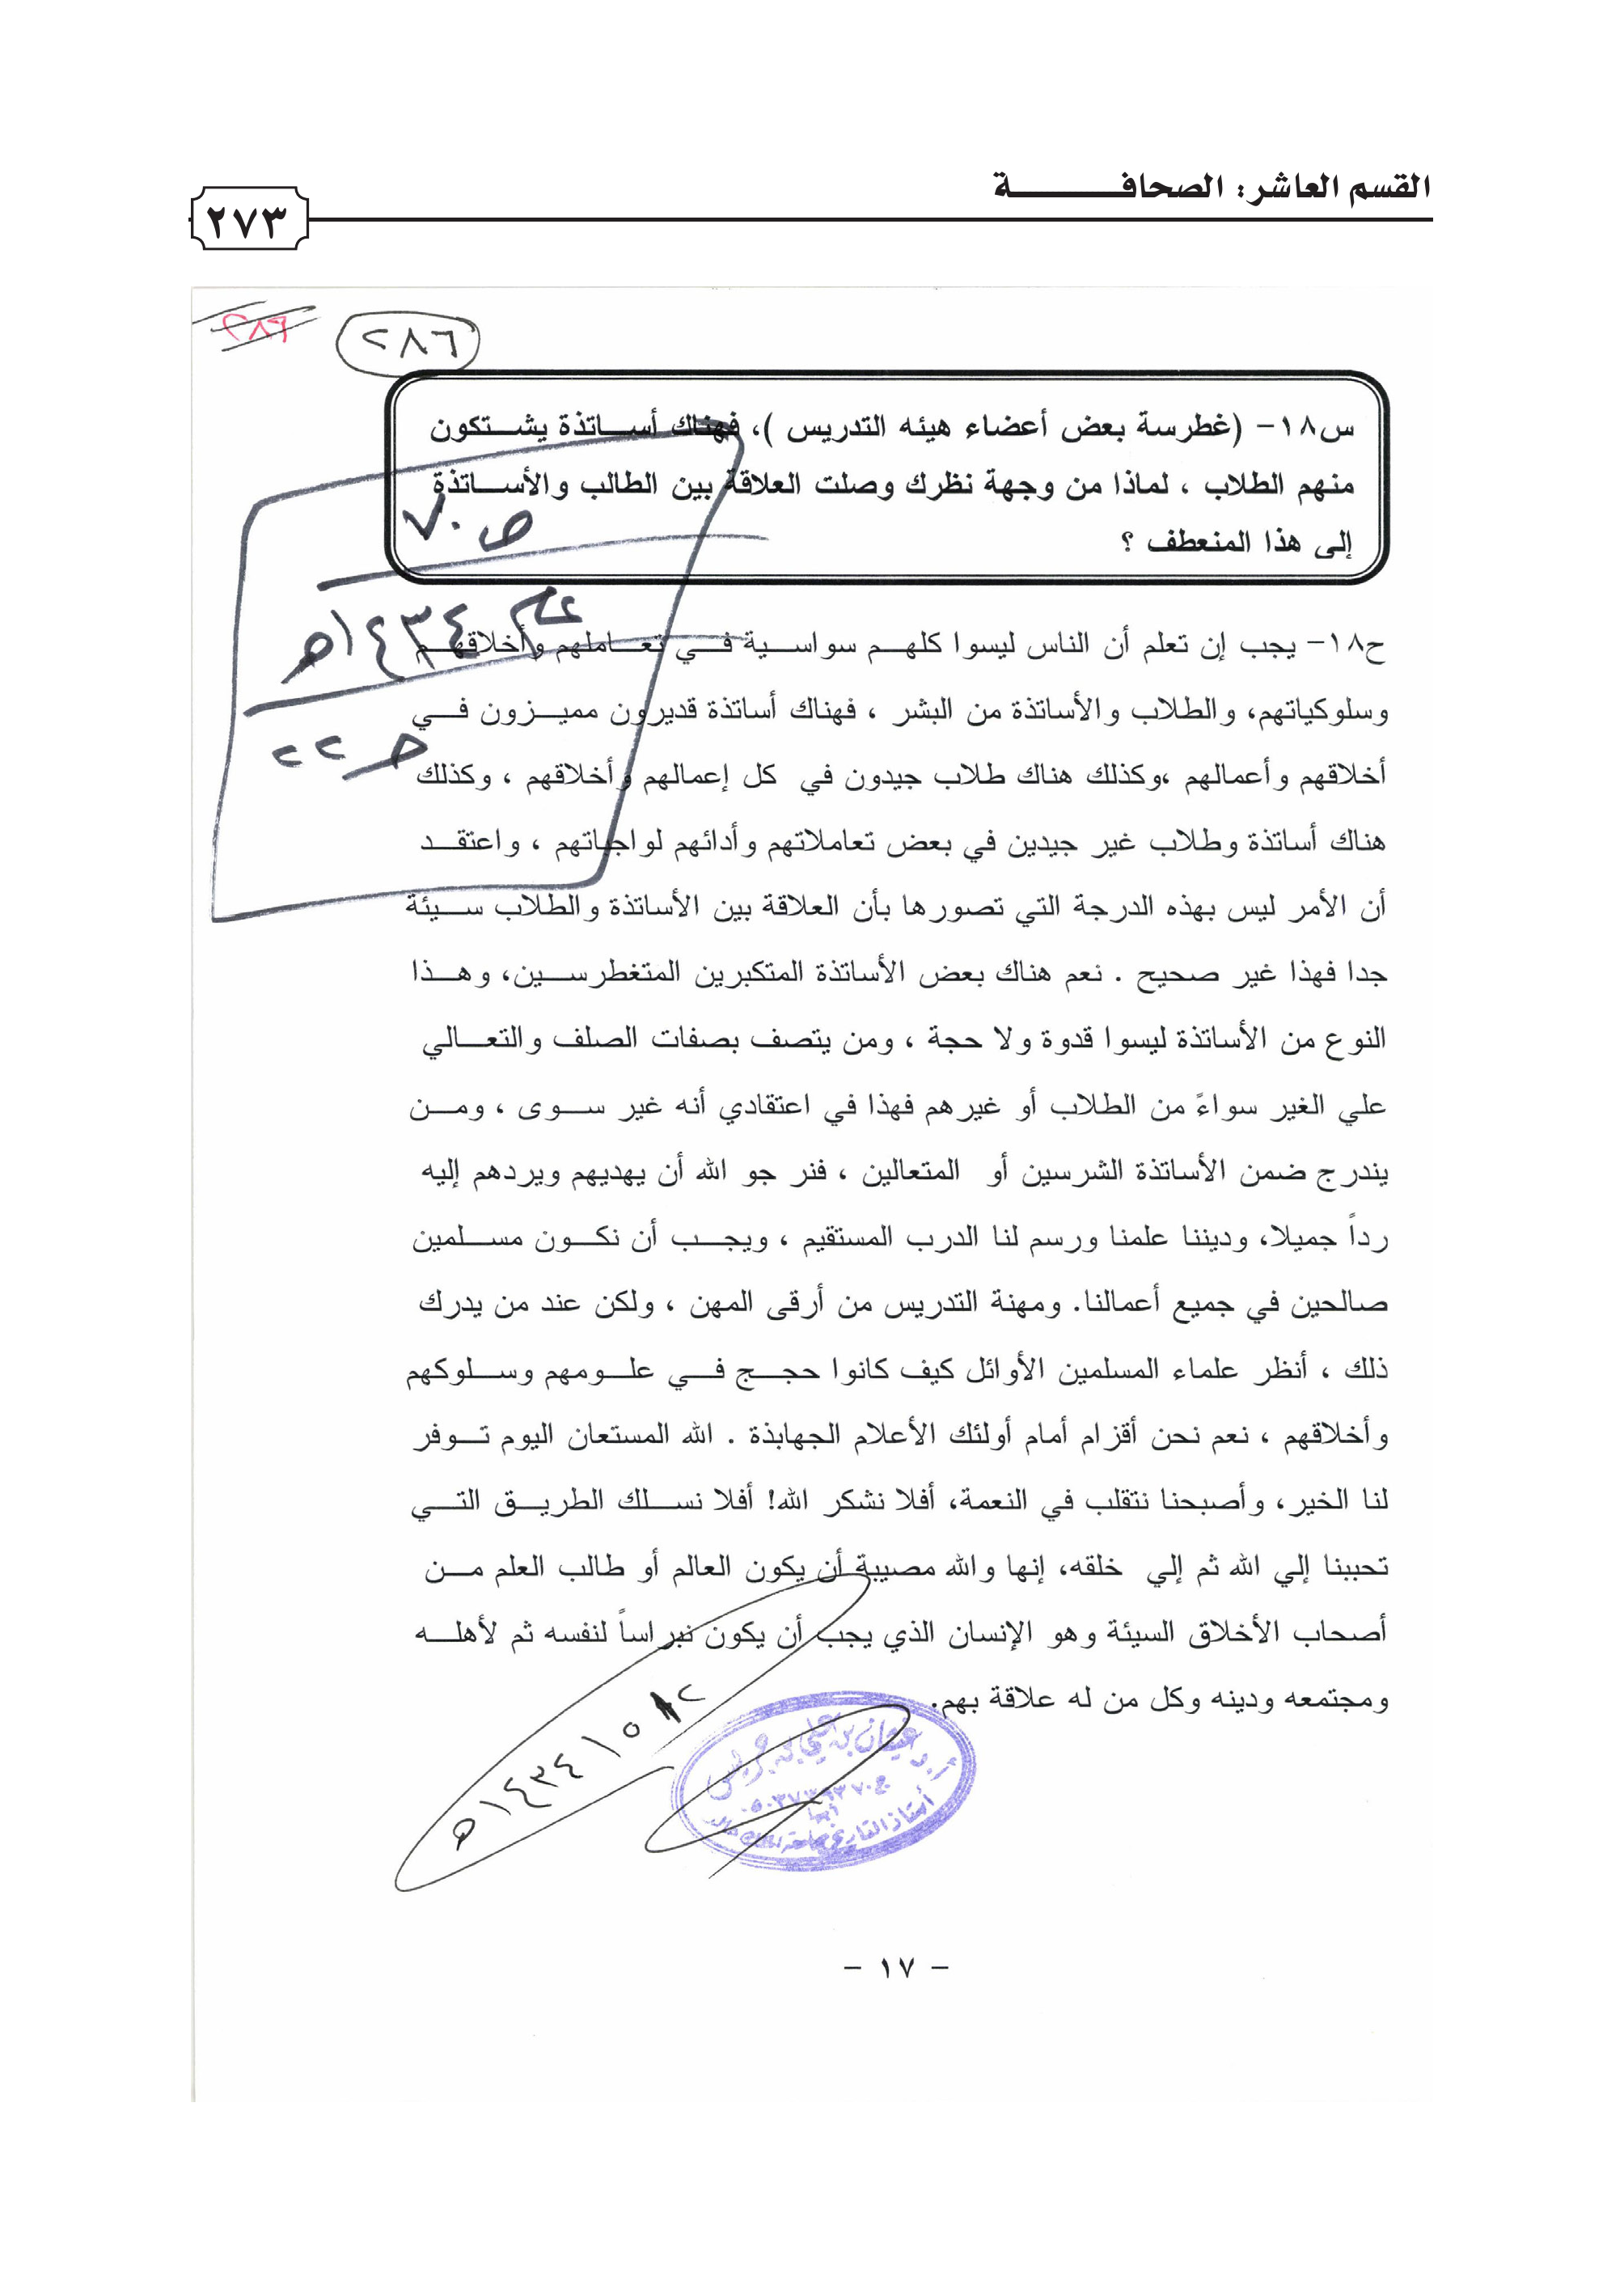 القسم العاشر: الصحافــــــــــة
٢٧٣
٢٨٦
٢٨٦
س١٨- (غطرسة بعض أعضاء هيئه التدريس )، فهناك أســـاتذة يشـــتكون
منهم الطلاب ، لماذا من وجهة نظرك وصلت العلاقة بين الطالب والأســـاتذة
إلى هذا المنعطف ؟
ص ٧٠
١٤٣٤هـ
حـ ٢٢
ح١٨- يجب إن تعلم أن الناس ليسوا كلهـــم سواســـية فـــي تعـــاملهم وأخلاقهـــم
وسلوكياتهم، والطلاب والأساتذة من البشر ، فهناك أساتذة قديرون مميـــزون فـــي
أخلاقهم وأعمالهم ،وكذلك هناك طلاب جيدون في كل إعمالهم وأخلاقهم ، وكذلك
هناك أساتذة وطلاب غير جيدين في بعض تعاملاتهم وأدائهم لواجباتهم ، واعتقـــد
أن الأمر ليس بهذه الدرجة التي تصورها بأن العلاقة بين الأساتذة والطلاب ســـيئة
جدا فهذا غير صحيح . نعم هناك بعض الأساتذة المتكبرين المتغطرســـين، وهـــذا
النوع من الأساتذة ليسوا قدوة ولا حجة ، ومن يتصف بصفات الصلف والتعـــالي
علي الغير سواءً من الطلاب أو غيرهم فهذا في اعتقادي أنه غير ســـوى ، ومـــن
يندرج ضمن الأساتذة الشرسين أو المتعالين ، فنر جو الله أن يهديهم ويردهم إليه
رداً جميلا، وديننا علمنا ورسم لنا الدرب المستقيم ، ويجـــب أن نكـــون مســـلمين
صالحين في جميع أعمالنا. ومهنة التدريس من أرقى المهن ، ولكن عند من يدرك
ذلك ، أنظر علماء المسلمين الأوائل كيف كانوا حجـــج فـــي علـــومهم وســـلوكهم
وأخلاقهم ، نعم نحن أقزام أمام أولئك الأعلام الجهابذة . الله المستعان اليوم تـــوفر
لنا الخير، وأصبحنا نتقلب في النعمة، أفلا نشكر الله! أفلا نســـلك الطريـــق التـــي
تحببنا إلي الله ثم إلي خلقه، إنها والله مصيبة أن يكون العالم أو طالب العلم مـــن
أصحاب الأخلاق السيئة وهو الإنسان الذي يجب أن يكون نبراساً لنفسه ثم لأهلـــه
ومجتمعه ودينه وكل من له علاقة بهم.
أ.د. غيثان بن علي بن جريس
أبها
- ١٧ -